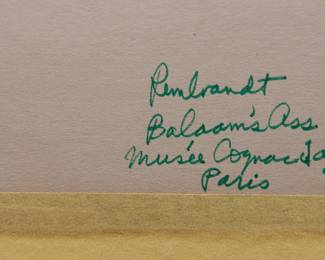 Rembrandt
Balaam's Ass
Musée Cognac
Paris